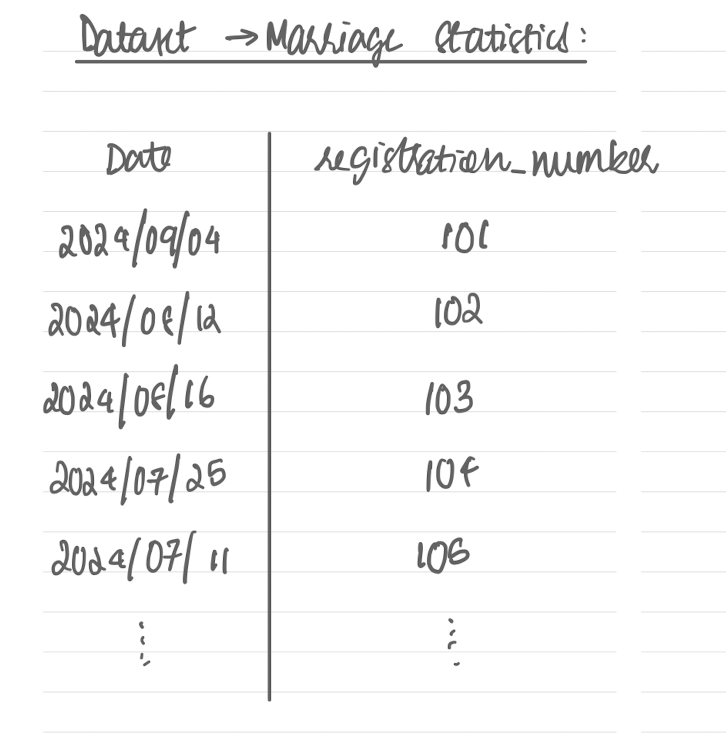 Dataset → Marriage Statistics:
Date registration_number
2024/09/04 101
2024/08/12 102
2024/08/16 103
2024/07/25 104
2024/07/11 106